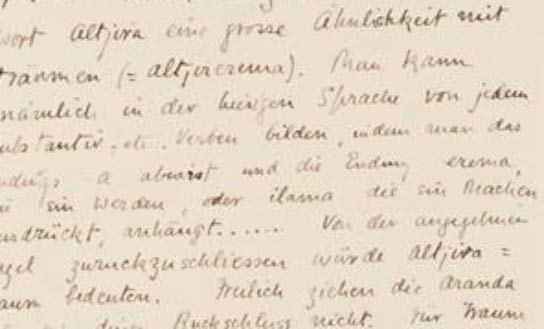 wort Altjira eine grosse Ähnlichkeit mit
träumen (= altjirerema). Man kann
nämlich in der hiesigen Sprache von jedem
Substantiv etc. Verben bilden, indem man das
a abwirft und die Endung erema,
die ein Werden, oder ilama die ein Machen
ausdrückt, anhängt...... Von der angegebenen
Regel zurückzuschliessen würde Altjira =
Traum bedeuten. Freilich ziehen die Aranda
Rückschluss nicht. Für Traum